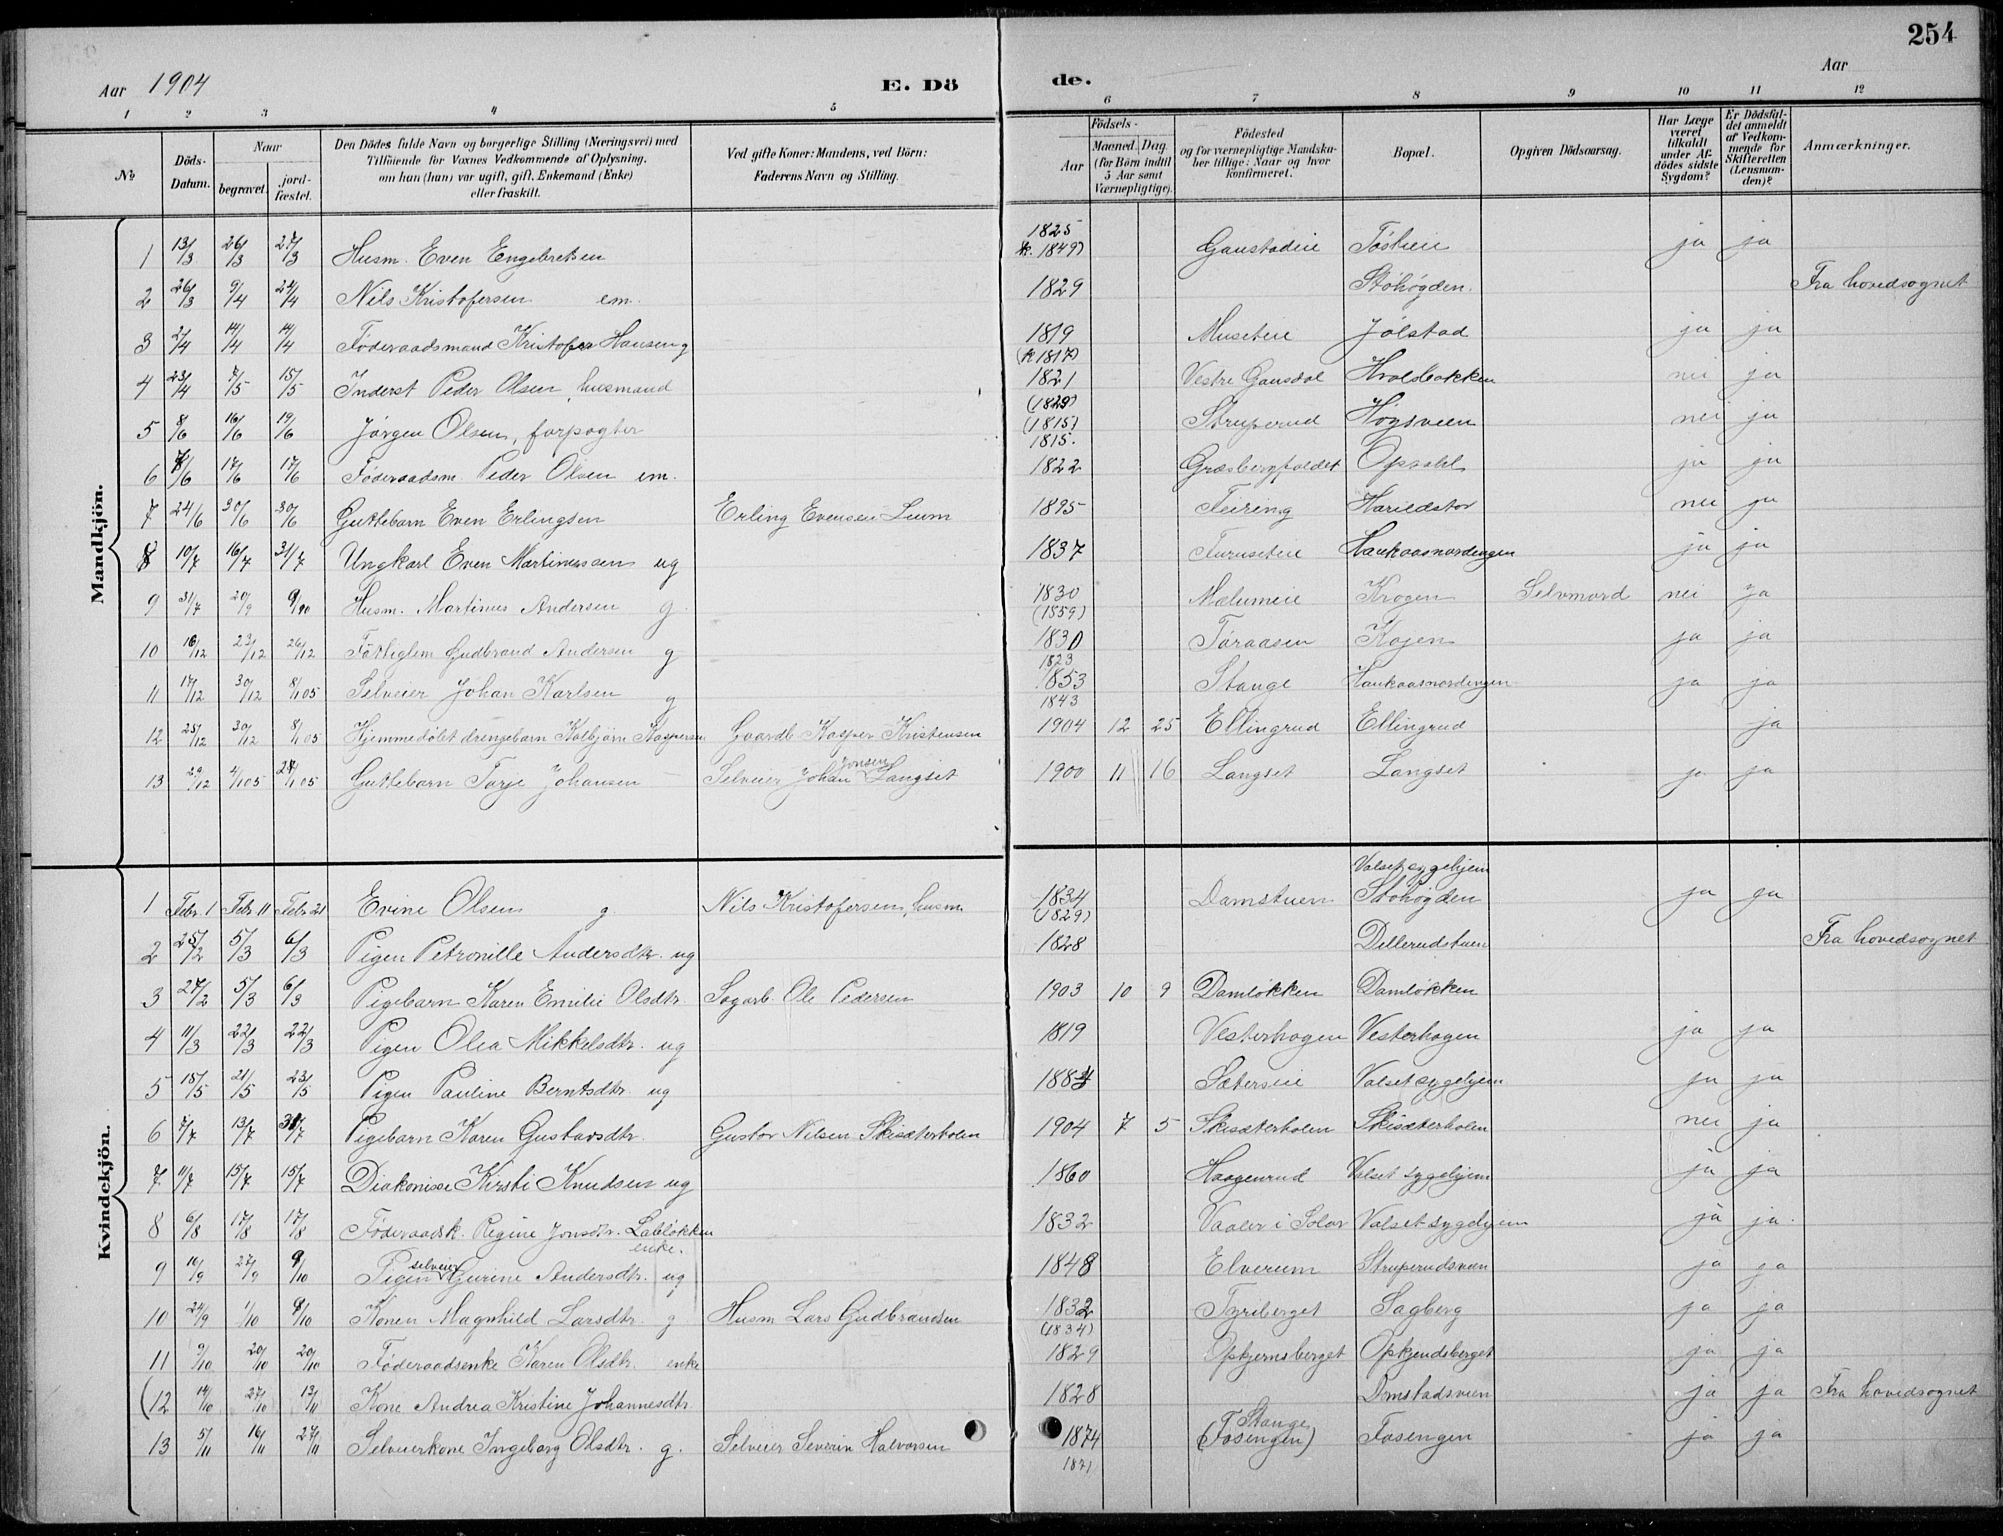 254
Aar 1904 E. Dö de. Aar
1 2 3 4 5 6 7 8 9 10 11 12
No
Döds-Datum.
Naar
begravet.
jord-fæstet.
Den Dödes fulde Navn og borgerlige Stilling (Næringsvei) med
Tilföiende for Voxnes Vedkommende af Oplysning,
om han (hun) var ugift, gift, Enkemand (Enke)
eller fraskilt.
Ved gifte Koner: Mandens, ved Börn:
Faderens Navn og Stilling.
Födsels-
Aar
Maaned. Dag.
(for Börn indtil
5 Aar samt
Værnepligtige).
Födested
og for værnepligtige Mandska-
ber tillige: Naar og hvor
konfirmeret.
Bopæl.
Opgiven Dödsaarsag.
Har Læge
været
tilkaldt
under Af-
dödes sidste
Sygdom?
Er Dödsfal-
det anmeldt
af Vedkom-
mende for
Skifteretten
(Lensman-
den)?
Anmærkninger.
Mandkjön.
1 13/3 26/3 27/3 Husm. Even Engebretsen 1825 (k. 1849) Gaustadeie Töslien ja ja
2 26/3 9/4 24/4 Nils Kristofersen em. 1829 Stöhögden. Fra hovedsognet
3 2/4 14/4 14/4 Föderaadsmand Kristofer Hansen g 1819 (k 1817) Museteie Jölstad ja ja
4 23/4 7/5 15/5 Inderst Peder Olsen, husmand 1821 (1829) Vestre Gausdal Hvalsbakken nei ja
5 8/6 16/6 19/6 Jörgen Olsen, forpagter (1815) 1815. Struperud Högsveen nei ja
6 7/6 17/6 17/6 Föderaadsm. Peder Olsen em. 1822 Græsbergfaldet Opsahl ja ja
7 24/6 30/6 30/6 Guttebarn Even Erlingsen Erling Evensen Lium 1895 Feiring Harildstor nei ja
8 10/7 16/7 31/7 Ungkarl Even Martinussen ug 1837 Furuseteie Haukaasnordengen ja ja
9 31/7 20/9 9/10 Husm. Martinus Andersen g. 1830 (1859) Mælumeie Krogen Selvmord nei ja
10 16/12 23/12 26/12 Fattiglem Gudbrand Andersen g 1830 1823 Töraasen Kojen ja ja
11 17/12 30/12 8/1 05 Selveier Johan Karlsen g 1853 1843 Stange Haukaasnordengen ja ja
12 25/12 30/12 8/1 05 Hjemmedöbt drengebarn Kolbjörn Kaspersen Gaardb Kasper Kristensen 1904 12 25 Ellingrud Ellingrud ja
13 29/12 4/1 05 28/1 05 Guttebarn Tarje Johansen Selveier Johan Jonsen Langset 1900 11 16 Langset Langset ja ja
Kvindekjön.
1 Febr. 1 Feb 11 Febr 21 Evine Olsen g Nils Kristofersen, husm. 1834 (1829) Damstuen Valset sygehjem Stöhögden ja ja
2 25/2 5/3 6/3 Pigen Petronille Andersdtr. ug 1828 Dellerudstuen Fra hovedsognet
3 27/2 5/3 6/3 Pigebarn Karen Emilie Olsdtr. Sagarb. Ole Pedersen 1903 10 9 Damlökken Damlökken
4 11/3 22/3 22/3 Pigen Olea Mikkelsdtr. ug 1819 Vesterhagen Vesterhagen ja ja
5 15/5 21/5 23/5 Pigen Pauline Berntsdtr. ug 1884 Sæterseie Valset sygehjem ja ja
6 7/7 13/7 31/7 Pigebarn Karen Gustavsdtr. Gustav Nilsen Skisæterholen 1904 7 5 Skisæterholen Skisæterholen nei ja
7 11/7 15/7 15/7 Diakonisse Kirsti Knudsen ug 1860 Haagenrud Valset sygehjem ja ja
8 6/8 17/8 17/8 Föderaadsk. Regine Jonsdtr. Lablökken enke. 1832 Vaaler i Solör Valset sygehjem ja ja.
9 16/9 27/9 9/10 Pigen selveier Gurine Andersdtr. ug 1848 Elverum Struperudsveen ja ja
10 24/9 1/10 9/10 Konen Magnhild Larsdtr. g Husm Lars Gudbrandsen 1832 (1834) Tyriberget Sagberg ja ja
11 9/10 20/10 20/10 Föderaadsenke Karen Olsdtr. enke 1829 Opkjernsberget Opkjendsberget ja ja
(12 14/10 27/10 13/11 Kone Andrea Kristine Johannesdtr 1828 Omstadsveen ja ja Fra hovedsognet
13 5/11 16/11 27/11 Selveierkone Ingeborg Olsdtr. g. Selveier Severin Halvorsen 1874 1821 Stange (Fosengen) Fosengen ja ja